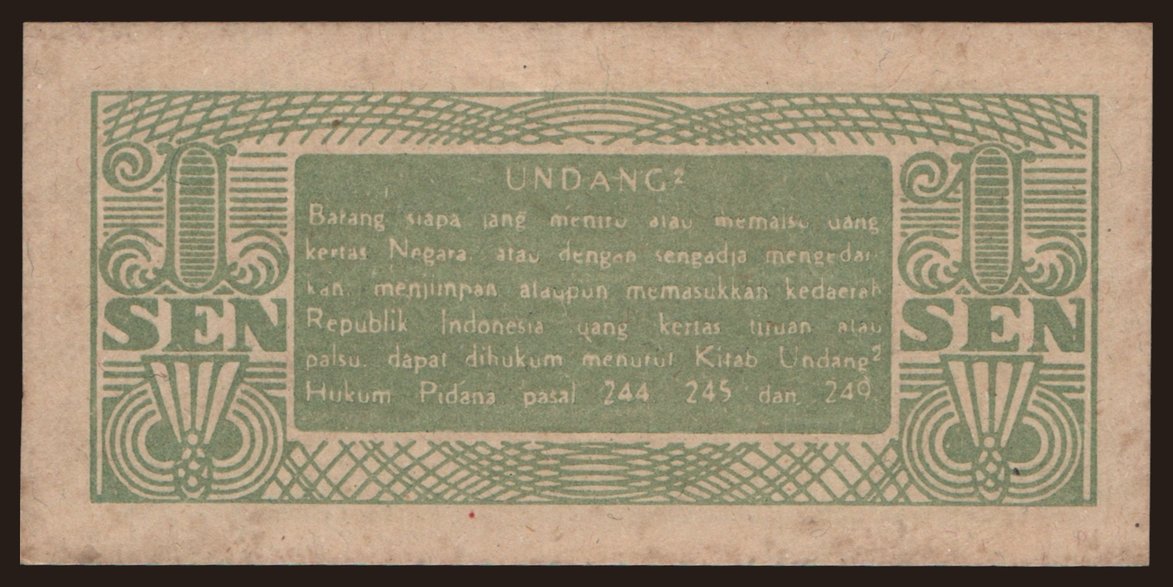 UNDANG²
Barang siapa jang meniru atau memalsu uang
kertas Negara, atau dengan sengadja mengedar-
kan, menjimpan ataupun memasukkan kedaerah
Republik Indonesia uang kertas tiruan atau
palsu, dapat dihukum menurut Kitab Undang²
Hukum Pidana pasal 244 245 dan 249.
1 1
SEN SEN